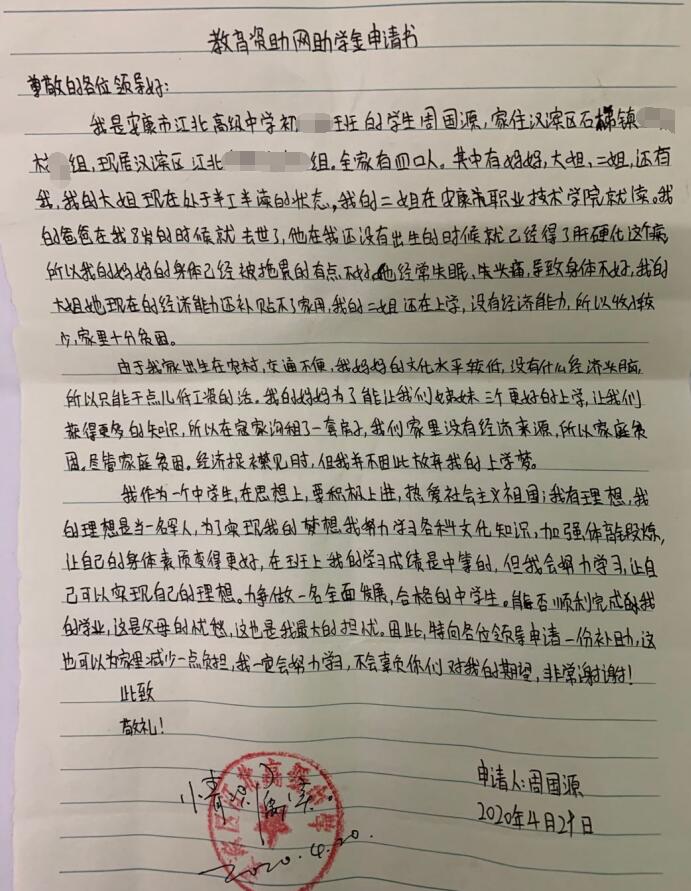 教育资助网助学金申请书
尊敬的各位领导好:
我是安康市江北高级中学初 班的学生周国源,家住汉滨区石梯镇
组,现居汉滨区江北 组.全家有四口人。其中有妈妈,大姐,二姐,还有
我,我的大姐现在处于半工半读的状态,我的二姐在安康市职业技术学院就读。我
的爸爸在我8岁的时候就去世了,他在我还没有出生的时候就已经得了肝硬化这个病,
所以我的妈妈的身体已经被拖累的有点不好,她经常失眠、头痛,导致身体不好,我的
大姐她现在的经济能力还补贴不了家用,我的二姐还在上学,没有经济能力,所以收入较
少,家里十分贫困。
由于我家出生在农村,交通不便,我妈妈的文化水平较低,没有什么经济头脑,
所以只能干点儿低工资的活。我的妈妈为了能让我们姊妹三个更好的上学,让我们
获得更多的知识,所以在寇家沟租了一套房子,我们家里没有经济来源,所以家庭贫
困。尽管家庭贫困。经济捉襟见肘,但我并不因此放弃我的上学梦。
我作为一个中学生,在思想上,要积极上进,热爱社会主义祖国;我有理想,我
的理想是当一名军人,为了实现我的梦想我努力学习各科文化知识,加强体育锻炼,
让自己的身体素质变得更好,在班上我的学习成绩是中等的,但我会努力学习,让自
己可以实现自己的理想。力争做一名全面发展,合格的中学生。能否顺利完成我
的学业,这是父母的忧愁,这也是我最大的担忧。因此,特向各位领导申请一份补助,这
也可以为家里减少一点负担,我一定会努力学习,不会辜负你们对我的期望,非常谢谢!
此致
敬礼!
申请人:周国源
2020年4月29日
2020.4.20.